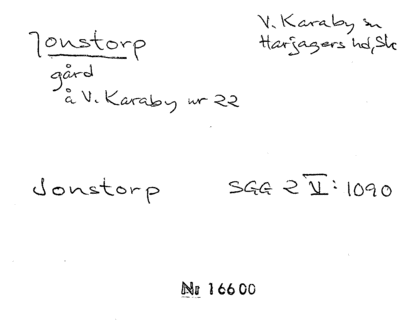 Jonstorp
V. Karaby sn
Harjagers hd, Sk
gård
å V. Karaby nr 22
Jonstorp
SGG 2 V: 1090
Nr 16600